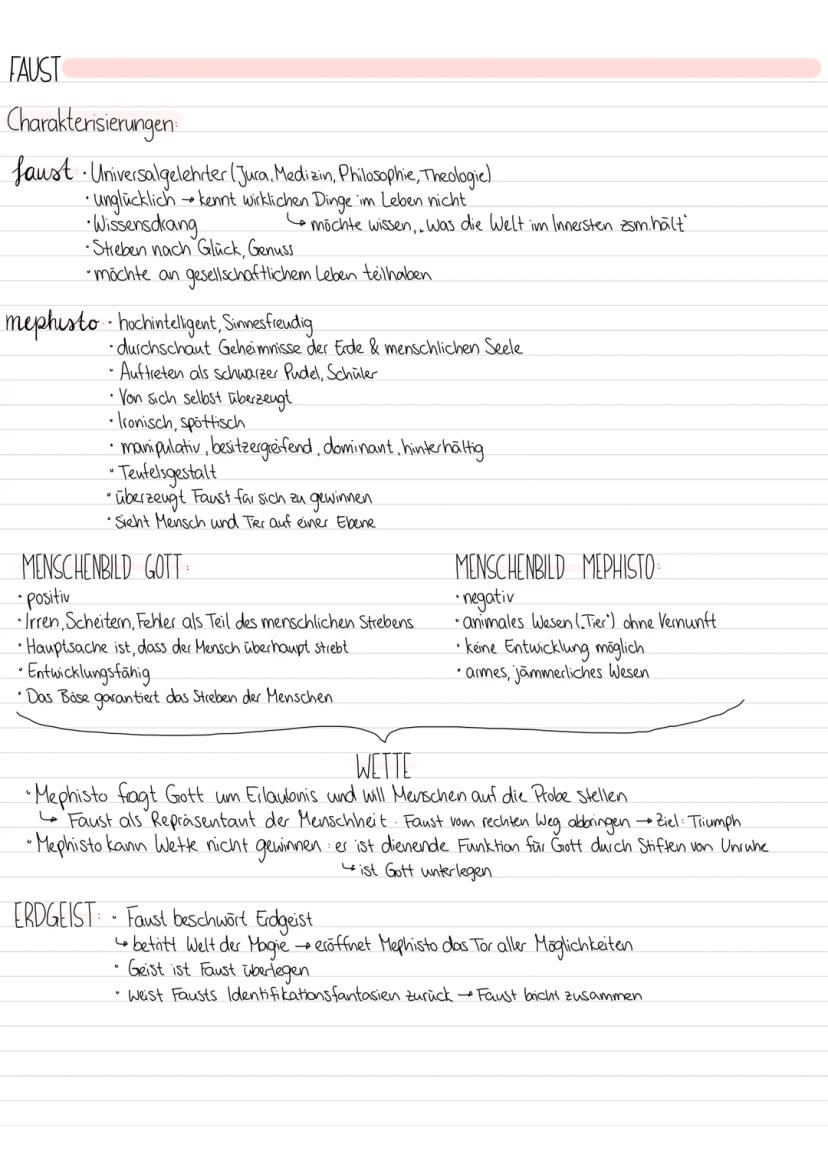 FAUST
Charakterisierungen:
faust · Universalgelehrter (Jura, Medizin, Philosophie, Theologie)
· unglücklich → kennt wirklichen Dinge im Leben nicht
· Wissensdrang ↳ möchte wissen, „Was die Welt im Innersten zsm. hält"
· Streben nach Glück, Genuss
· möchte an gesellschaftlichem Leben teilhaben
mephisto · hochintelligent, Sinnesfreudig
· durchschaut Geheimnisse der Erde & menschlichen Seele
· Auftreten als schwarzer Pudel, Schüler
· Von sich selbst überzeugt
· Ironisch, spöttisch
· manipulativ, besitzergreifend, dominant, hinterhältig
· Teufelsgestalt
· überzeugt Faust für sich zu gewinnen
· Sieht Mensch und Tier auf einer Ebene
MENSCHENBILD GOTT:
· positiv
· Irren, Scheitern, Fehler als Teil des menschlichen Strebens
· Hauptsache ist, dass der Mensch überhaupt strebt
· Entwicklungsfähig
· Das Böse garantiert das Streben der Menschen
MENSCHENBILD MEPHISTO:
· negativ
· animales Wesen („Tier") ohne Vernunft
· keine Entwicklung möglich
· armes, jämmerliches Wesen
WETTE
· Mephisto fragt Gott um Erlaubnis und will Menschen auf die Probe stellen
↳ Faust als Repräsentant der Menschheit · Faust vom rechten Weg abbringen → Ziel: Triumph
· Mephisto kann Wette nicht gewinnen: er ist dienende Funktion für Gott durch Stiften von Unruhe
↳ ist Gott unterlegen
ERDGEIST: · Faust beschwört Erdgeist
↳ betritt Welt der Magie → eröffnet Mephisto das Tor aller Möglichkeiten
· Geist ist Faust überlegen
· weist Fausts Identifikationsfantasien zurück → Faust bricht zusammen